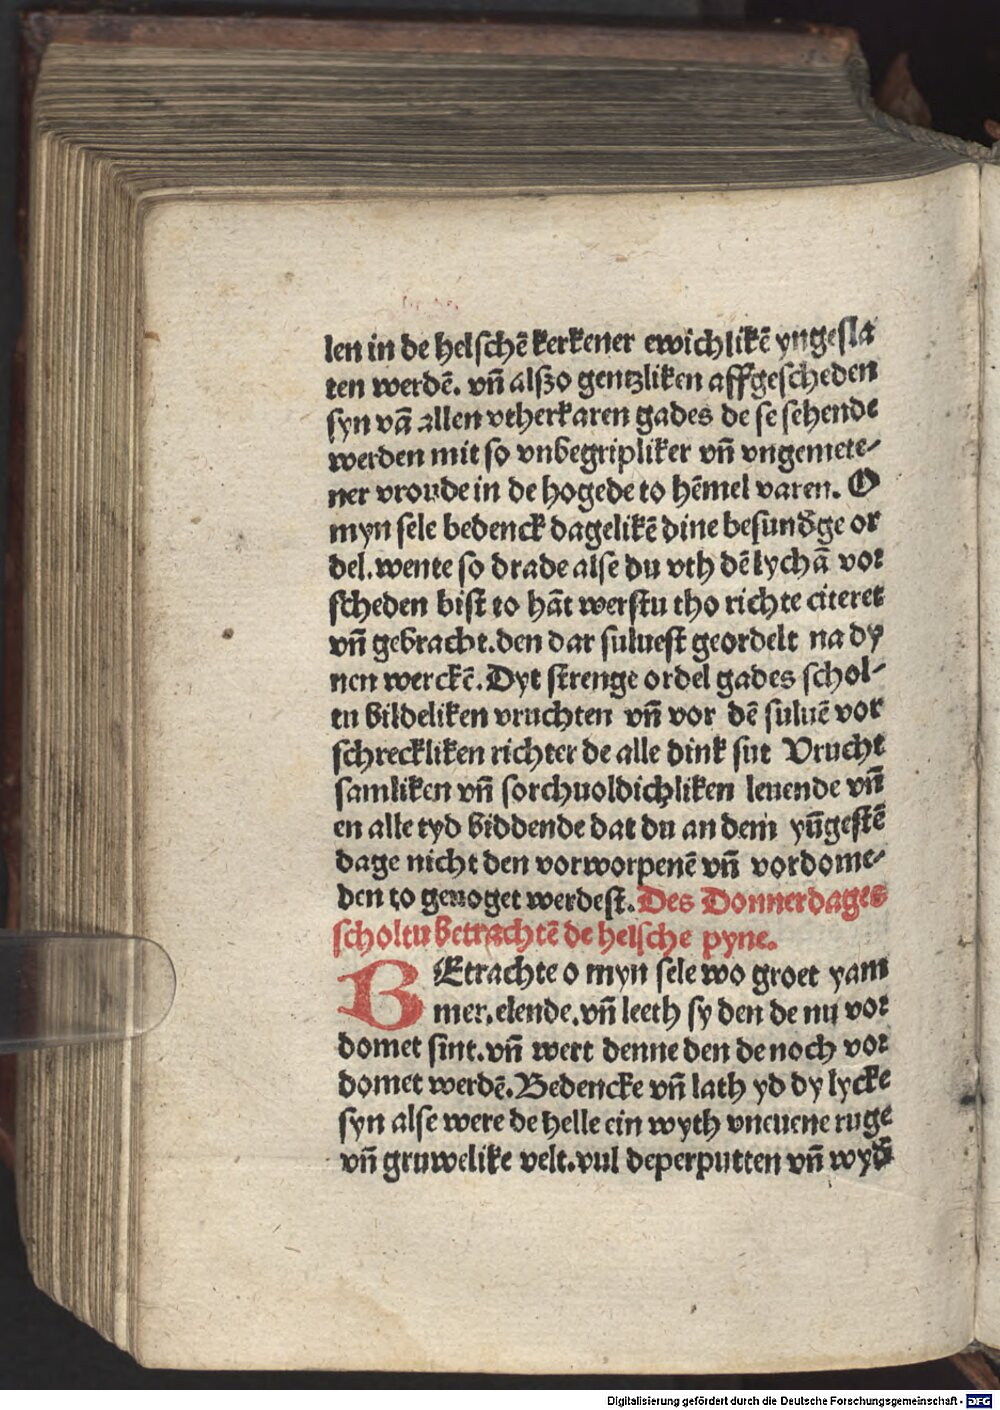 len in de helschē kerkener ewichlikē yngesla
ten werdē. vn̄ alßo gentzliken affgescheden
syn vā allen vtherkaren gades de se sehende
werden mit so vnbegripliker vn̄ vngemete-
ner vroude in de hogede to hēmel varen. O
myn sele bedenck dagelikē dine besund̄ge or
del. wente so drade alse du vth dē lychā vor
scheden bist to hāt werstu tho richte citeret
vn̄ gebracht. den dar suluest geordelt na dy
nen werckē. Dyt strenge ordel gades schol-
tu bildeliken vruchten vn̄ vor dē suluē vor
schreckliken richter de alle dink sut Vrucht
samliken vn̄ sorchuoldichliken leuende vn̄
en alle tyd biddende dat du an dem yūgestē
dage nicht den vorworpenē vn̄ vordome-
den to geuoget werdest. Des Donnerdages
scholtu betrachtē de helsche pyne.
BEtrachte o myn sele wo groet yam
mer, elende. vn̄ leeth sy den de nu vor
domet sint. vn̄ wert denne den de noch vor
domet werdē. Bedencke vn̄ lath yd dy lycke
syn alse were de helle ein wyth vneuene ruge
vn̄ gruwelike velt. vul deperputten vn̄ wyd̄
Digitalisierung gefördert durch die Deutsche Forschungsgemeinschaft - DFG